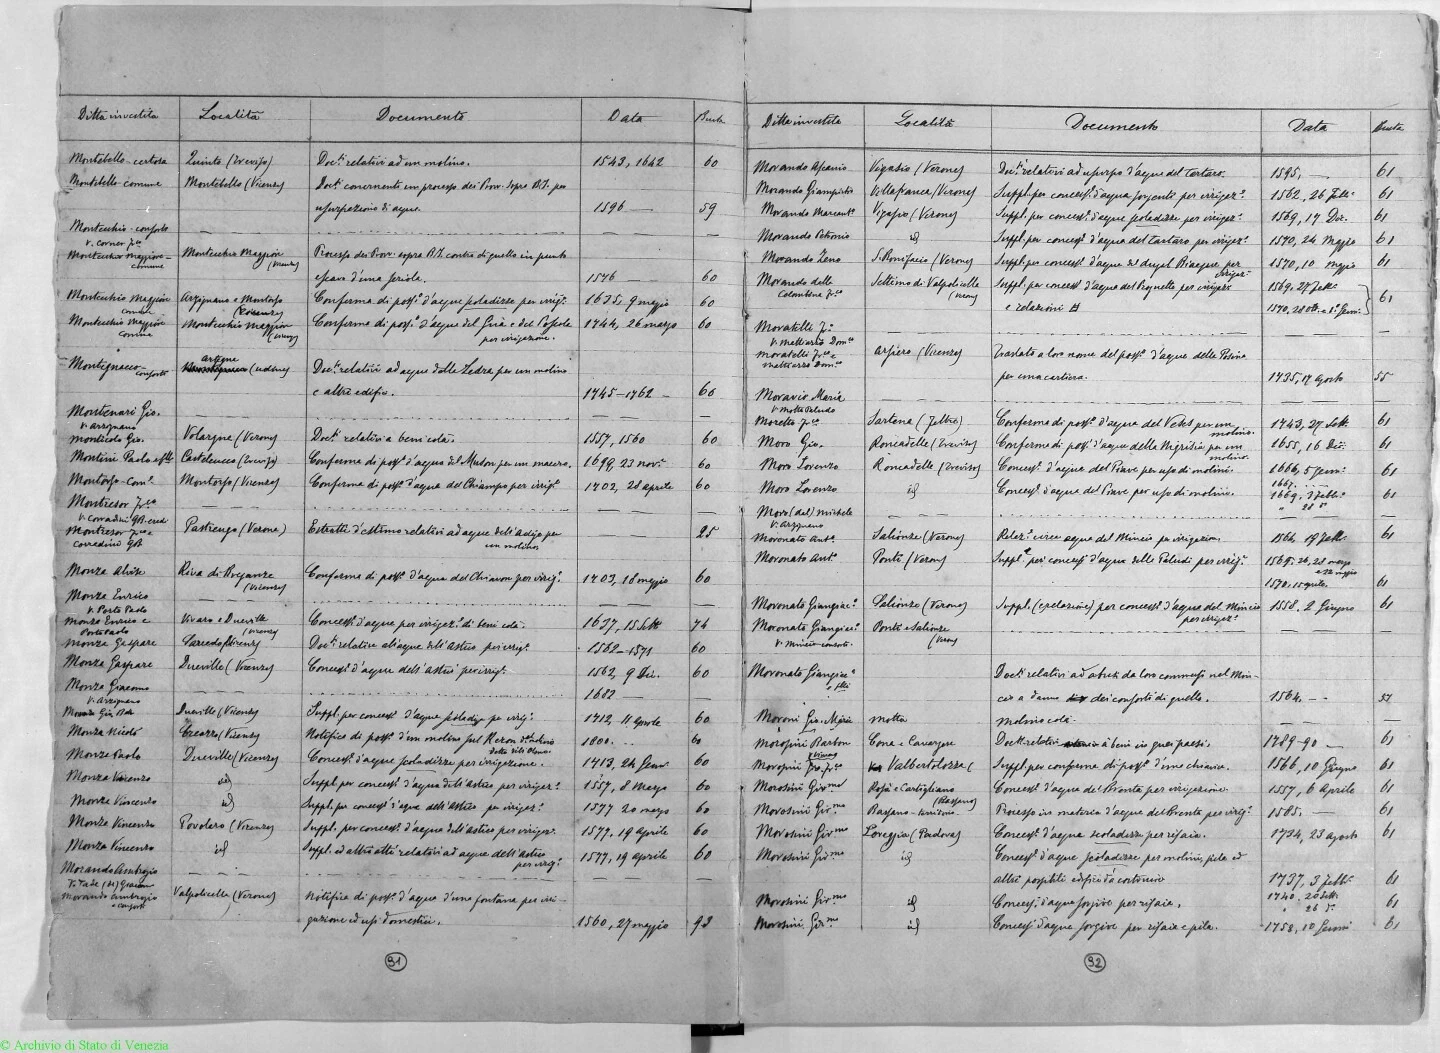 Ditta investita Località Documento Data Busta
Montebello-certosa Quinto (Treviso) Doc.ti relativi ad un molino. 1543, 1642 60
Montebello-comune Montebello (Vicenza) Doc.ti concernenti un processo dei Provv. sopra B.I. per
usurpazione di acque. 1596 — 59
Montecchio-consorti — — — — —
v. Corner
Montecchio Maggiore- Montecchio Maggiore Processo dei Provv. sopra B.I. contro di quello in punto
comune (Vicenza)
escavo d'una seriola. 1546 60
Montecchio Maggiore Arzignano e Montorso Conferma di poss.o d'acque scoladizze per irrig.e 1635, 9 maggio 60
comune (Vicenza)
Montecchio Maggiore Montecchio Maggiore Conferma di poss.o d'acque del Guà e del 1744, 26 marzo 60
comune (Vicenza) per irrigazione.
Artegne
Montegnacco- (Udine) Doc.ti relativi ad acque della Ledra per un molino
consorti
e altri edifici. 1745-1762 60
Montenari Gio. — — — —
v. Arzignano
Monticolo Gio. Volargne (Verona) Doc.ti relativi a beni colà. 1557, 1560 60
Montini Paolo Castelcucco (Treviso) Conferma di poss.o d'acque del Muson per un 1699, 23 nov.e 60
Montorso-Com.e Montorso (Vicenza) Conferma di poss.o d'acque del Chiampo per irrig.e 1702, 28 aprile 60
Montresor — — — —
v. Corradini GB. eredi
Montresor Pastrengo (Verona) Estratti d'estimo relativi ad acque dell'Adige per — 25
Corradini GB un molino
Monza Alvise Riva di Breganze Conferma di poss.o d'acque del Chiavon per irrig.e 1703, 18 maggio 60
(Vicenza)
Monza Enrico — — — —
v. Porto Paolo
Monza Enrico e Vivaro e Dueville Concess.e d'acque per irrigaz.e di beni colà. 1637, 15 Sett. 74
Porto Paolo (Vicenza)
Monza Gaspare Sarcedo (Vicenza) Doc.ti relativi all'acque dell'Astico per irrig.e 1562-1571 60
Monza Gaspare Dueville (Vicenza) Concess.e d'acque dell'Astico per irrig.e 1562, 9 Dic. 60
Monza Giacomo — — 1682 — —
v. Arzignano
Monza Gio. Bta Dueville (Vicenza) Suppl. per concess.e d'acque scoladizze per irrig.e 1712, 11 Aprile 60
Monza Nicolò Creazzo (Vicenza) Notifica di poss.o d'un molino sul Reron 1800. .. 60
Monza Paolo Dueville (Vicenza) Concess.e d'acque scoladizze per irrigazione. 1713, 24 Genn. 60
Monza Vicenzo id Suppl. per concess.e d'acque dell'Astico per irrigaz.e 1557, 8 Marzo 60
Monza Vincenzo id Suppl. per concess.e d'acque dell'Astico per irrigaz.e 1577 20 marzo 60
Monza Vincenzo Povolero (Vicenza) Suppl. per concess.e d'acque dell'Astico per irrigaz. 1577, 19 Aprile 60
Monza Vincenzo id Suppl. ed altri atti relativi ad acque dell'Astico 1577, 19 aprile 60
per irrig.e
Morando Ambrogio — — — —
Morando Ambrogio Valpolicella (Verona) Notifica di poss.o d'acque d'una fontana per irri-
e consorti
gazione ed usi domestici. 1560, 27 maggio 93
91
Ditta investita Località Documento Data Busta
Morando Ascanio Vigasio (Verona) Doc.ti relativi ad usurpo d'acque del Tartaro. 1595, — 61
Morando Villafranca (Verona) Suppl. per concess.e d'acqua sorgente per irrigaz.e 1562, 26 Febb. 61
Morando Marcant.o Vigasio (Verona) Suppl. per concess.e d'acque scoladizze per irrigaz.e 1569, 17 Dic. 61
Morando Petronio id Suppl. per concess.e d'acque del Tartaro per irrigaz.e 1570, 24 Maggio 61
Morando Zeno S. Bonifacio (Verona) Suppl. per concess.e d'acque del per 1570, 10 maggio 61
irrigaz.e
Morando delle Settimo di Valpolicella Suppl. per concess.e d'acque del Prognetto per irrigaz.e 1569, 27 Febb.
Colombine (Verona) 61
e relazioni 1570, 28 Ott. e
Moratelli — — — —
v. Mattiazzo Dom.co
Moratelli e Arsiero (Vicenza) Traslato a loro nome del poss.o d'acque della Posina
Mattiazzo Dom.co
per una cartiera. 1735, 17 agosto 55
Moravio Maria — — — —
v. Motta Paludo
Moretto Sartena (Feltre) Conferma di poss.o d'acque del per un 1743, 27 Sett. 61
molino.
Moro Gio. Roncadelle (Treviso) Conferma di poss.o d'acque della Negrisia per un 1655, 16 Dic. 61
molino.
Moro Lorenzo Roncadelle (Treviso) Concess.e d'acque del Piave per uso di molini. 1666, 5 Genn. 61
Moro Lorenzo id Concess.e d'acque del Piave per uso di molino. 1669, 3 Febb. 61
Moro (del) Michele — — — —
v. Arzignano
Moronato Ant. Salionze (Verona) Relaz.e circa acque del Mincio per irrigazione. 1564 19 Febb. 61
Moronato Ant. Ponte (Verona) Suppl.e per concess.e d'acque delle Paludi per irrig.e 1569, 26, 28 marzo
1570, 15 aprile. 61
Moronato Giangiac.o Salionze (Verona) Suppl. (e relazione) per concess.e d'acque del Mincio 1558, 2 Giugno 61
per irrigaz.e
Moronato Giangiac.o Ponte e Salionze — — —
v. Mincio-consorti (Verona)
Moronato Giangiac.o Doc.ti relativi ad abusi da loro commessi nel Min-
e flli
cio a danno dei consorti di quelle. 1564. — 57
Moroni Gio. Maria Motta Molino colà. — —
Morosini Barbon Cona e Cavarzere Doc.ti relativi a beni in quei paesi. 1789-90 — 61
Morosini Valbertolozza ( Suppl. per conferma di poss.o d'una chiavica. 1566, 10 Giugno 61
Morosini Gir.mo Rosà e Cartigliano Concess.e d'acque del Brenta per irrigazione. 1557, 6 Aprile 61
(Bassano)
Morosini Gir.mo Bassano - territorio. Processo in materia d'acque del Brenta per irrig.e 1585, — 61
Morosini Gir.mo Loreggia (Padova) Concess.e d'acqua scoladizza per risaia. 1734, 23 agosto 61
Morosini Gir.mo id Concess.e d'acque scoladizze per molini, pila ed
altri possibili edifici da costruirsi 1737, 3 Febb. 61
Morosini Gir.mo id Concess.e d'acque sorgive per risaie. 1740, 20 Sett. 61
Morosini Gir.mo id Concess.e d'acque sorgive per risaie e pila. 1758, 10 Genn. 61
92
© Archivio di Stato di Venezia